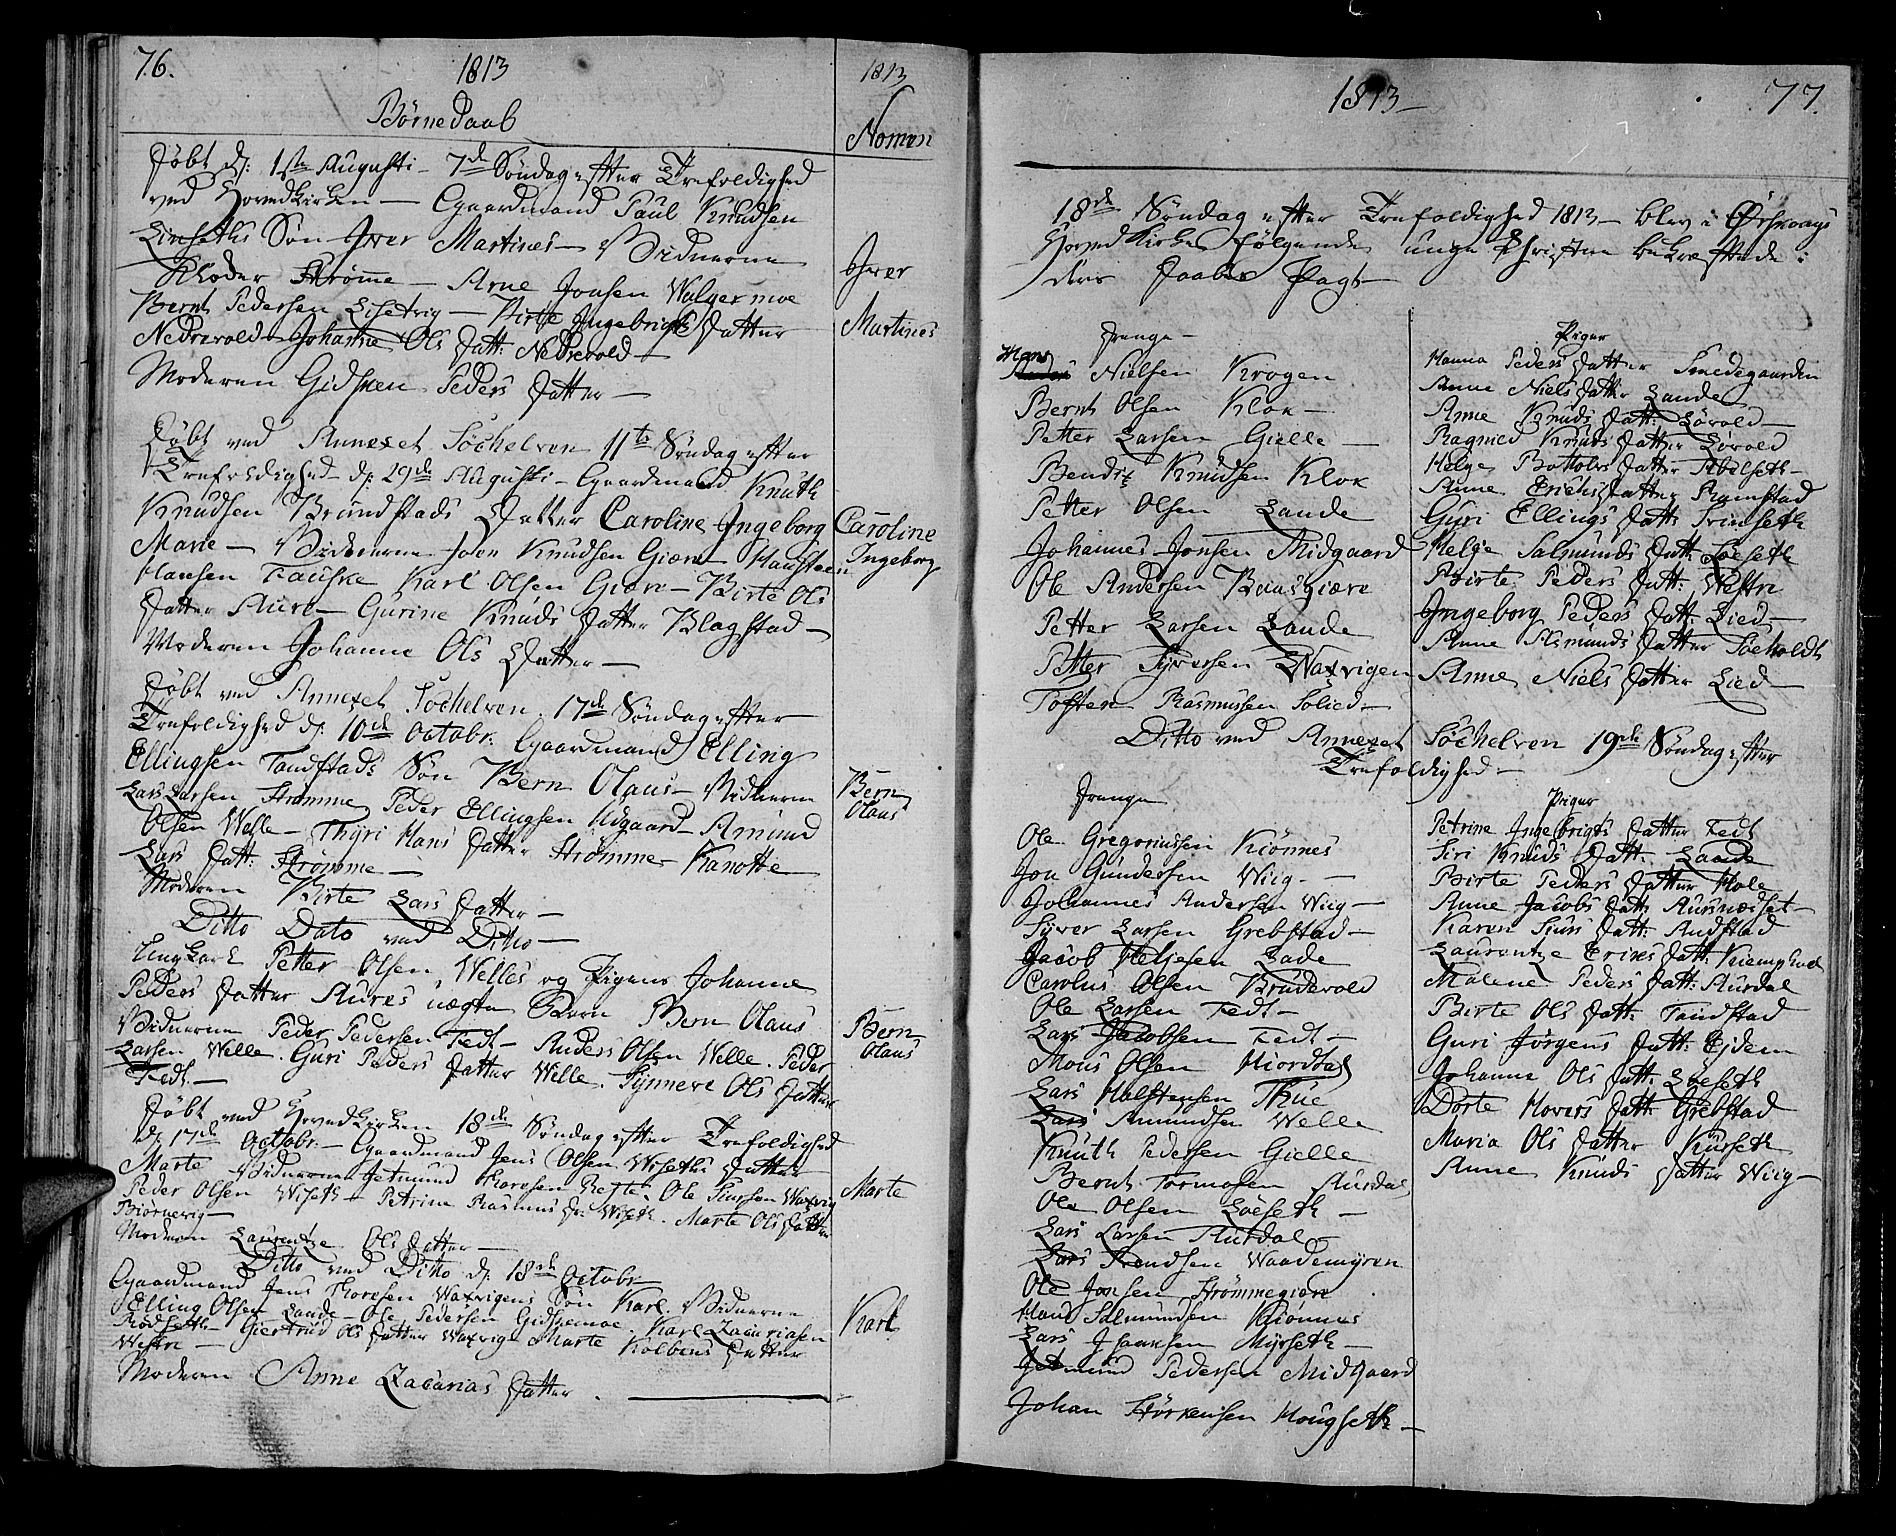 76. 1813 1813
BørneDaab Nomen
Døbt d: 1ste Augusti - 7de Søndag efter Trefoldighed
ved Hovedkirken - Gaardmand Paul Knudsen
Linseths Søn Iver Martines - Vidnerne
Strømme - Arne Jonsen Walgermoe
Iver
Bernt Pedersen - Birte Ingebrigts Datter
Martines
Nedrevold - Johanne Ols Datt: Nedrevold -
Moderen Gidsken Peders Datter -
Døbt ved Annexet Søchelven 11te Søndag efter
Trefoldighed d: 29de Augusti - Gaardmand Knuth
Knudsen Brundstads Datter Caroline Ingeborg
Caroline
Marie - Vidnerne Knudsen Giære
Ingeborg
Hansen Fauske Karl Olsen Giære - Birte Ols
Datter Aure - Gurine Knuds Datter Blagstad -
Moderen Johanne Ols Datter -
Døbt ved Annexet Søchelven 17de Søndag efter
Trefoldighed d: 10de Octobr: Gaardmand Elling
Ellingsen Tandstads Søn Bern Olaus - Vidnerne
Bern
Olaus
Lars Larsen Strømme Peder Ellingsen Amund
Olsen Welle - Thyri Hans Datter Strømme -
Lars Datt: Strømme -
Moderen Birte Lars Datter -
Ditto Dato ved Ditto -
Ungkarl Petter Olsen Welles og Pigens Johanne
Peders Datter Aures uægte Barn Bern Olaus
Bern
Olaus
Vidnerne Peder Pedersen Fedt - Anders Olsen Welle. Peder
Larsen Welle. Guri Peders Datter Welle. Synneve Ols Datter
Fedt. -
Døbt ved Hovedkirken 18de Søndag efter Trefoldighed
d: 17de Octobr: - Gaardmand Jens Olsen Wiseths Datter
Marte Vidnerne Thoresen Ole
Marte
Peder Olsen Wiseth - Petrine Rasmus Wiseth. Marte Ols Datter
Biørnevig -
Moderen Laurentze Ols Datter -
Ditto ved Ditto d: 18de Octobr
Gaardmand Jens Thoresen Waxvigens Søn Karl. Vidnerne
Karl
Elling Olsen Lande - Ole Pedersen Gidskemoe. Karl Zacariasen
Rødseth - Giertrud Ols Datter Waxvig Marte Kolbens Datter
Westre -
Moderen Anne Zacarias Datter.
1813 - 77.
18de Søndag efter Trefoldighed 1813 - blev i Ørskougs
Hoved Kirke følgende unge Christne bekræftede i
deres Daabs Pagt
Drenge -
Hans Nielsen Krogen
Bernt Olsen Klok -
Petter Larsen Gielle -
Bendix Knudsen Klok
Petter Olsen Lande
Johannes Jonsen Midgaard
Ole Andersen Baasgiære
Petter Larsen Lande
Petter Syversen Waxvigen
Tosten Rasmussen Solied -
Piger
Hanna Peders Datter Smedegaarden
Anne Niels Datter Lande
Anne Knuds Datt: Lørold -
Ragnild Knuds Datter Lørold
Helge Bottolvs Datter Abelseth -
Anne Erichs Datter Ramstad
Guri Ellings Datt:
Helge Salmunds Datt:
Birte Peders Datt: Westre
Ingeborg Peders Datt: Lied -
Anne Asmunds Datter Søeholdt
Anne Niels Datter Lied -
Ditto ved Annexet Søchelven 19de Søndag efter
Trefoldighed -
Drenge
Ole Gregoriussen Kiønnes
Jon Gundersen Wiig -
Johannes Andersen Wiig -
Syver Larsen Grebstad -
Jacob Helgesen Lade
Carolus Olsen Brudevold
Ole Larsen Fedt -
Lars Jacobsen Fedt -
Mons Olsen Hiordtal
Lars Halstensen Thue
Lars Amundsen Welle
Knuth Pedersen Gielle
Bernt Tormosen Aurdal
Ole Olsen Løeseth -
Lars Larsen Aurdal
Lars Waademyren
Ole Jonsen Strømmegiære
Hans Salmundsen Kiønnes
Lars Isaaksen Myrseth -
Pedersen Midgaard
Johan Størkersen Hougseth -
Piger
Petrine Ingebrigts Datter Fedt
Siri Knuds Datt: Laade
Birte Peders Datter Hole
Anne Jacobs Datt: Aursnesset -
Karen Siurs Datt: Andstad
Laurentze Erixs Datt:
Malene Peders Datt: Aurdal
Birte Ols Datt: Tandstad
Guri Jørgens Datt: Ejdem
Johanne Ols Datt: Løeseth
Dorte Hovers Datt: Grebstad
Maria Ols Datter Kurseth
Anne Knuds Datter Wiig -